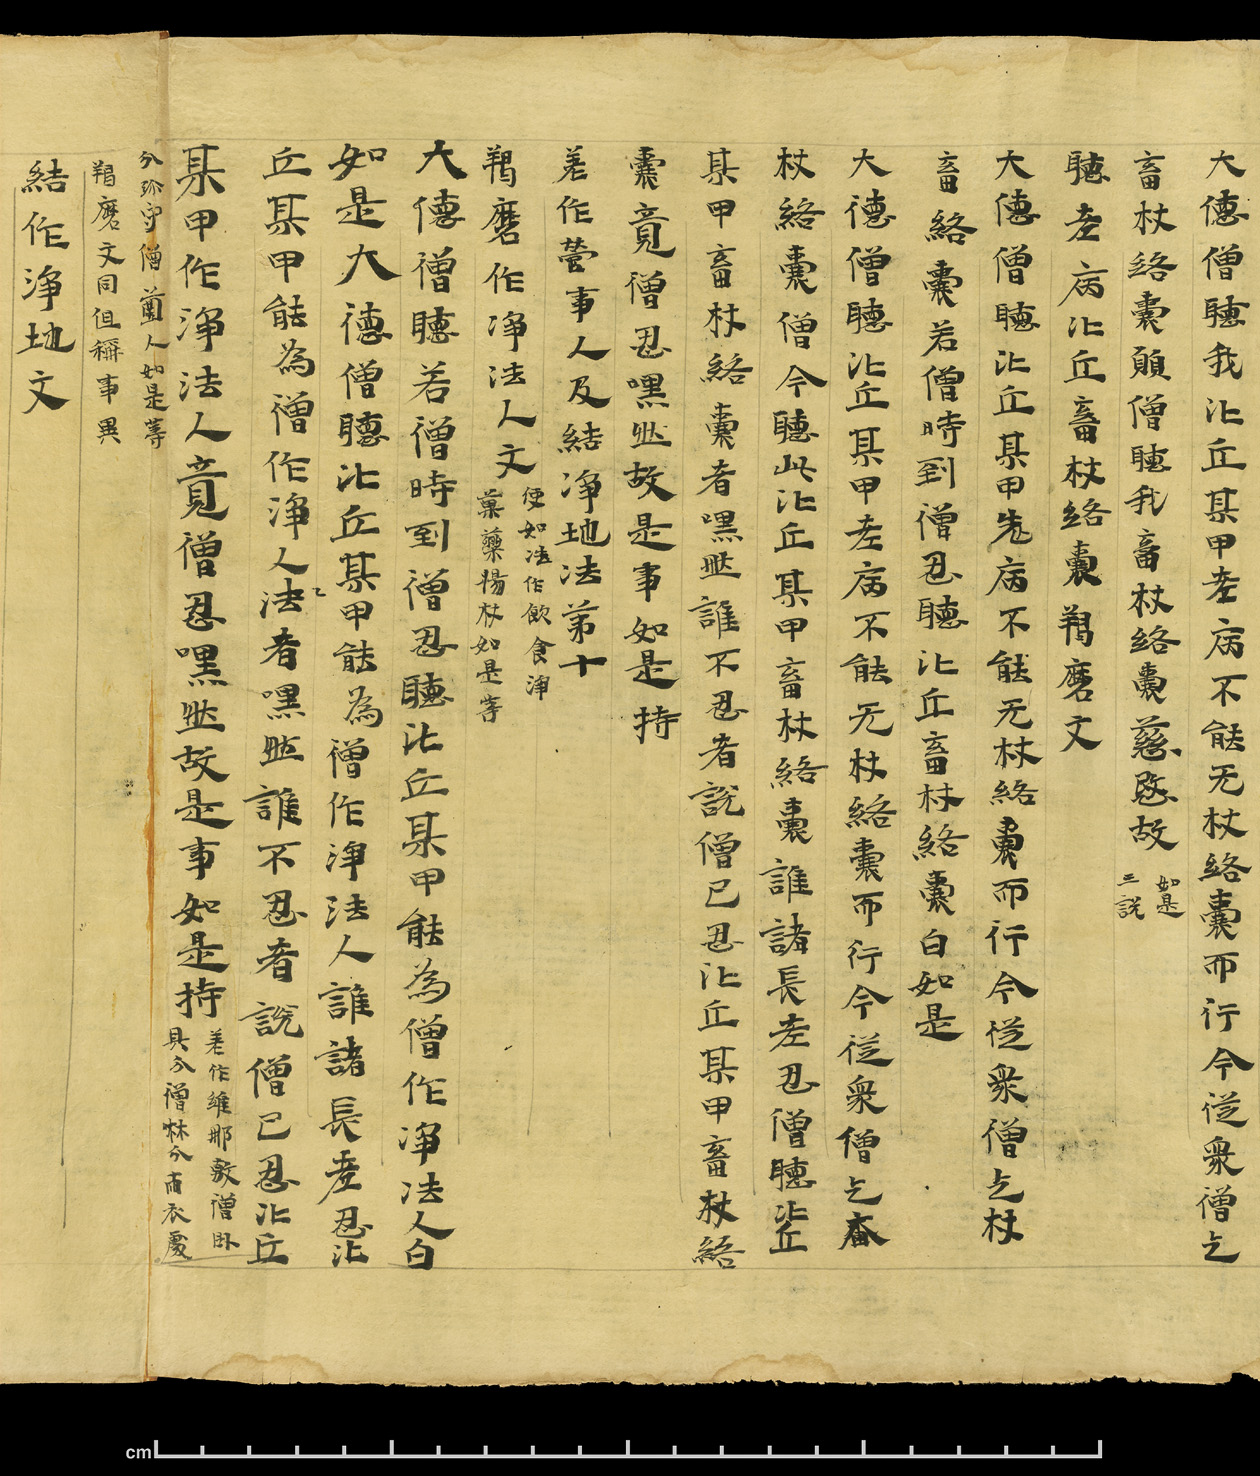 大德僧聽我比丘某甲老病不能无杖絡囊而行今從衆僧乞
畜杖絡囊願僧聽我畜杖絡囊慈愍故如是三說
聽老病比丘畜杖絡囊羯磨文
大德僧聽比丘某甲老病不能无杖絡囊而行今從衆僧乞杖
畜絡囊若僧時到僧忍聽比丘畜杖絡囊白如是
大德僧聽比丘某甲老病不能无杖絡囊而行今從衆僧乞畜
杖絡囊僧今聽此比丘某甲畜杖絡囊誰諸長老忍僧聽比丘
某甲畜杖絡囊者嘿然誰不忍者說僧已忍比丘某甲畜杖絡
囊竟僧忍嘿然故是事如是持
差作營事人及結淨地法第十
羯磨作淨法人文使如法作飲食淨菓藥楊杖如是等
大德僧聽若僧時到僧忍聽比丘某甲能為僧作淨法人白
如是大德僧聽比丘某甲能為僧作淨法人誰諸長老忍比
丘某甲能為僧作淨人法者嘿然誰不忍者說僧已忍比丘
某甲作淨法人竟僧忍嘿然故是事如是持差作維那敷僧卧具分僧粥分雨衣處
分 守僧園人如是等
羯磨文同但稱事異
結作淨地文